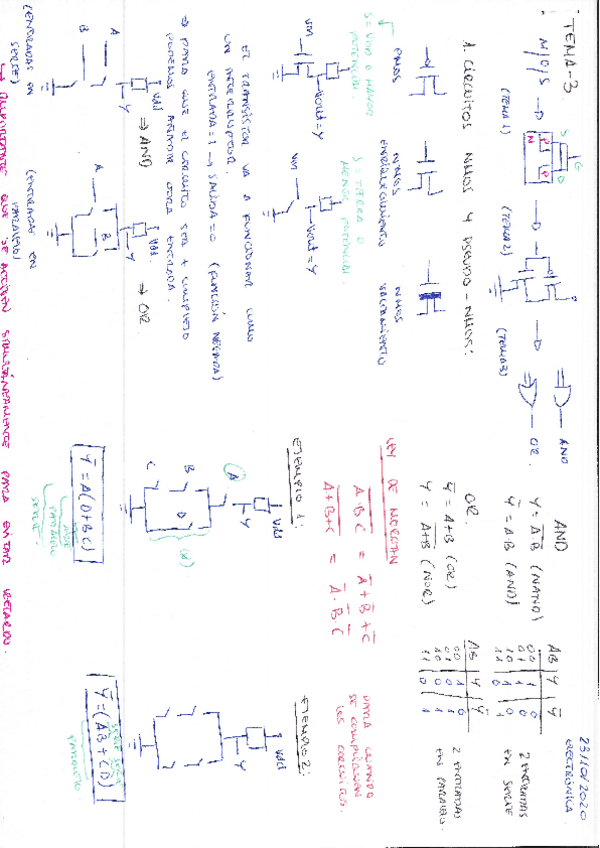 23/10/2020
ELECTRÓNICA.
TEMA-3
M/O/S
(TEMA 1)
S G D
P P
N
(TEMA 2)
(TEMA 3)
AND
OR.
1. CIRCUITOS NMOS Y PSEUDO-NMOS:
PMOS
NMOS
ENRIQUECIMIENTO
NMOS
VACIAMIENTO
S = VDD O MAYOR
POTENCIAL.
S = TIERRA O
MENOR POTENCIAL.
Vin
Vout = Y
Vin
Vout = Y
EL TRANSISTOR VA A FUNCIONAR COMO
UN INTERRUPTOR.
ENTRADA = 1 → SALIDA = 0 (FUNCIÓN NEGADA)
⇒ PARA QUE EL CIRCUITO SEA + COMPLEJO
PODEMOS AÑADIR OTRA ENTRADA.
Vdd
Y
A
B
⇒ AND
(ENTRADAS EN
SERIE)
Vdd.
Y
A
B
⇒ OR.
(ENTRADAS EN
PARALELO)
QUE SE ACTIVEN SIMULTÁNEAMENTE PARA EVITAR RETARDO.
AND
Y = \overline{AB} (NAND)
\overline{Y} = AB (AND)
AB | Y | \overline{Y}
00 | 1 | 0
01 | 1 | 0
10 | 1 | 0
11 | 0 | 1
2 ENTRADAS
EN SERIE
OR.
\overline{Y} = A+B (OR)
Y = \overline{A+B} (NOR)
AB | Y | \overline{Y}
00 | 1 | 0
01
10
11 | 0 | 1
2 ENTRADAS
EN PARALELO.
LEY DE MORGAN
\overline{A·B·C} = \overline{A} + \overline{B} + \overline{C}
\overline{A+B+C} = \overline{A}·\overline{B}·\overline{C}
PARA CUANDO
SE COMPLIQUEN
LOS CIRCUITOS.
EJEMPLO 1:
Vdd
Y
A
B
D
C
\overline{Y} = A(D+BC)
SERIE
PARALELO
SERIE.
EJEMPLO 2:
Vdd
Y
\overline{Y} = (AB + CD)
SERIE SERIE
PARALELO